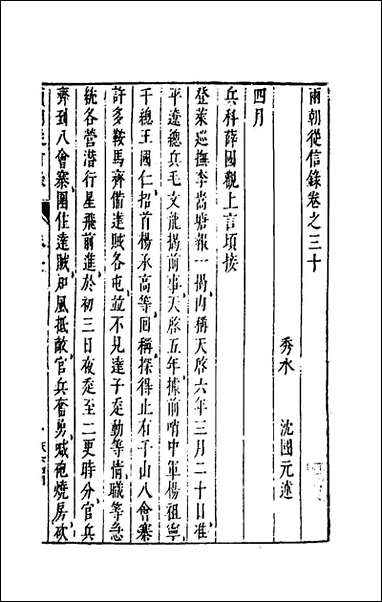 兩朝從信錄卷之三十
秀水 沈國元述
四月
兵科薛國觀上言頃接
登萊巡撫李嵩塘報一揭內稱天啓六年三月二十日准
平遼總兵毛文龍揭前事天啓五年據前哨中軍楊祖寧
千總王國仁招首楊承高等回稱探得止有千山八會寨
許多鞍馬齊備達賊各屯並不見達子走動等情職等急
統各營潛行星飛前進於初三日夜走至二更時分官兵
齊到八會寨圍住達賊知風抵敵官兵奮勇喊砲燒房砍